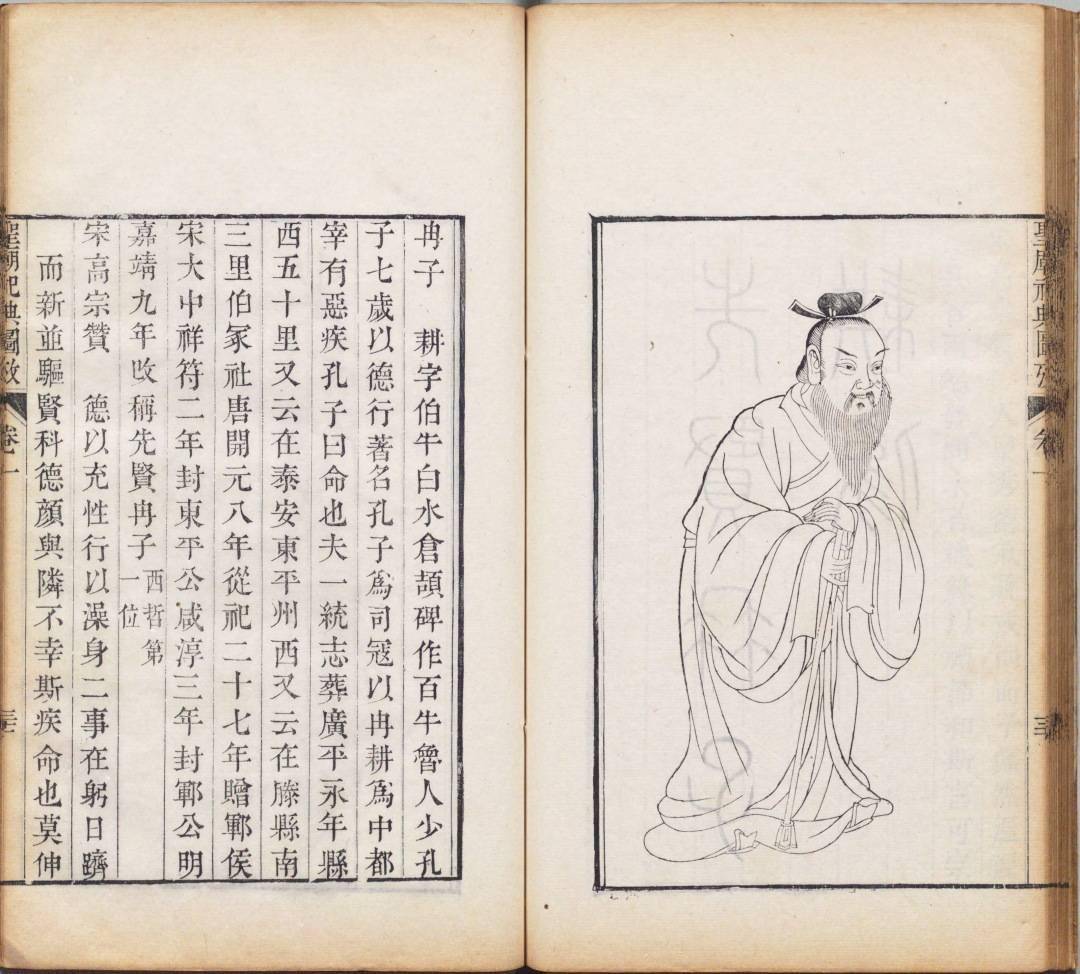 聖廟祀典圖攷 卷一
冉子 耕字伯牛白水倉頡碑作百牛魯人少孔
子七歲以德行著名孔子爲司寇以冉耕爲中都
宰有惡疾孔子曰命也夫一統志葬廣平永年縣
西五十里又云在泰安東平州西又云在滕縣南
三里伯冢社唐開元八年從祀二十七年贈鄆侯
宋大中祥符二年封東平公咸淳三年封鄆公明
嘉靖九年改稱先賢冉子 西哲第一位
宋高宗贊 德以充性行以澡身二事在躬日躋
而新並驅賢科德顔與隣不幸斯疾命也莫伸
聖廟祀典圖攷 卷一